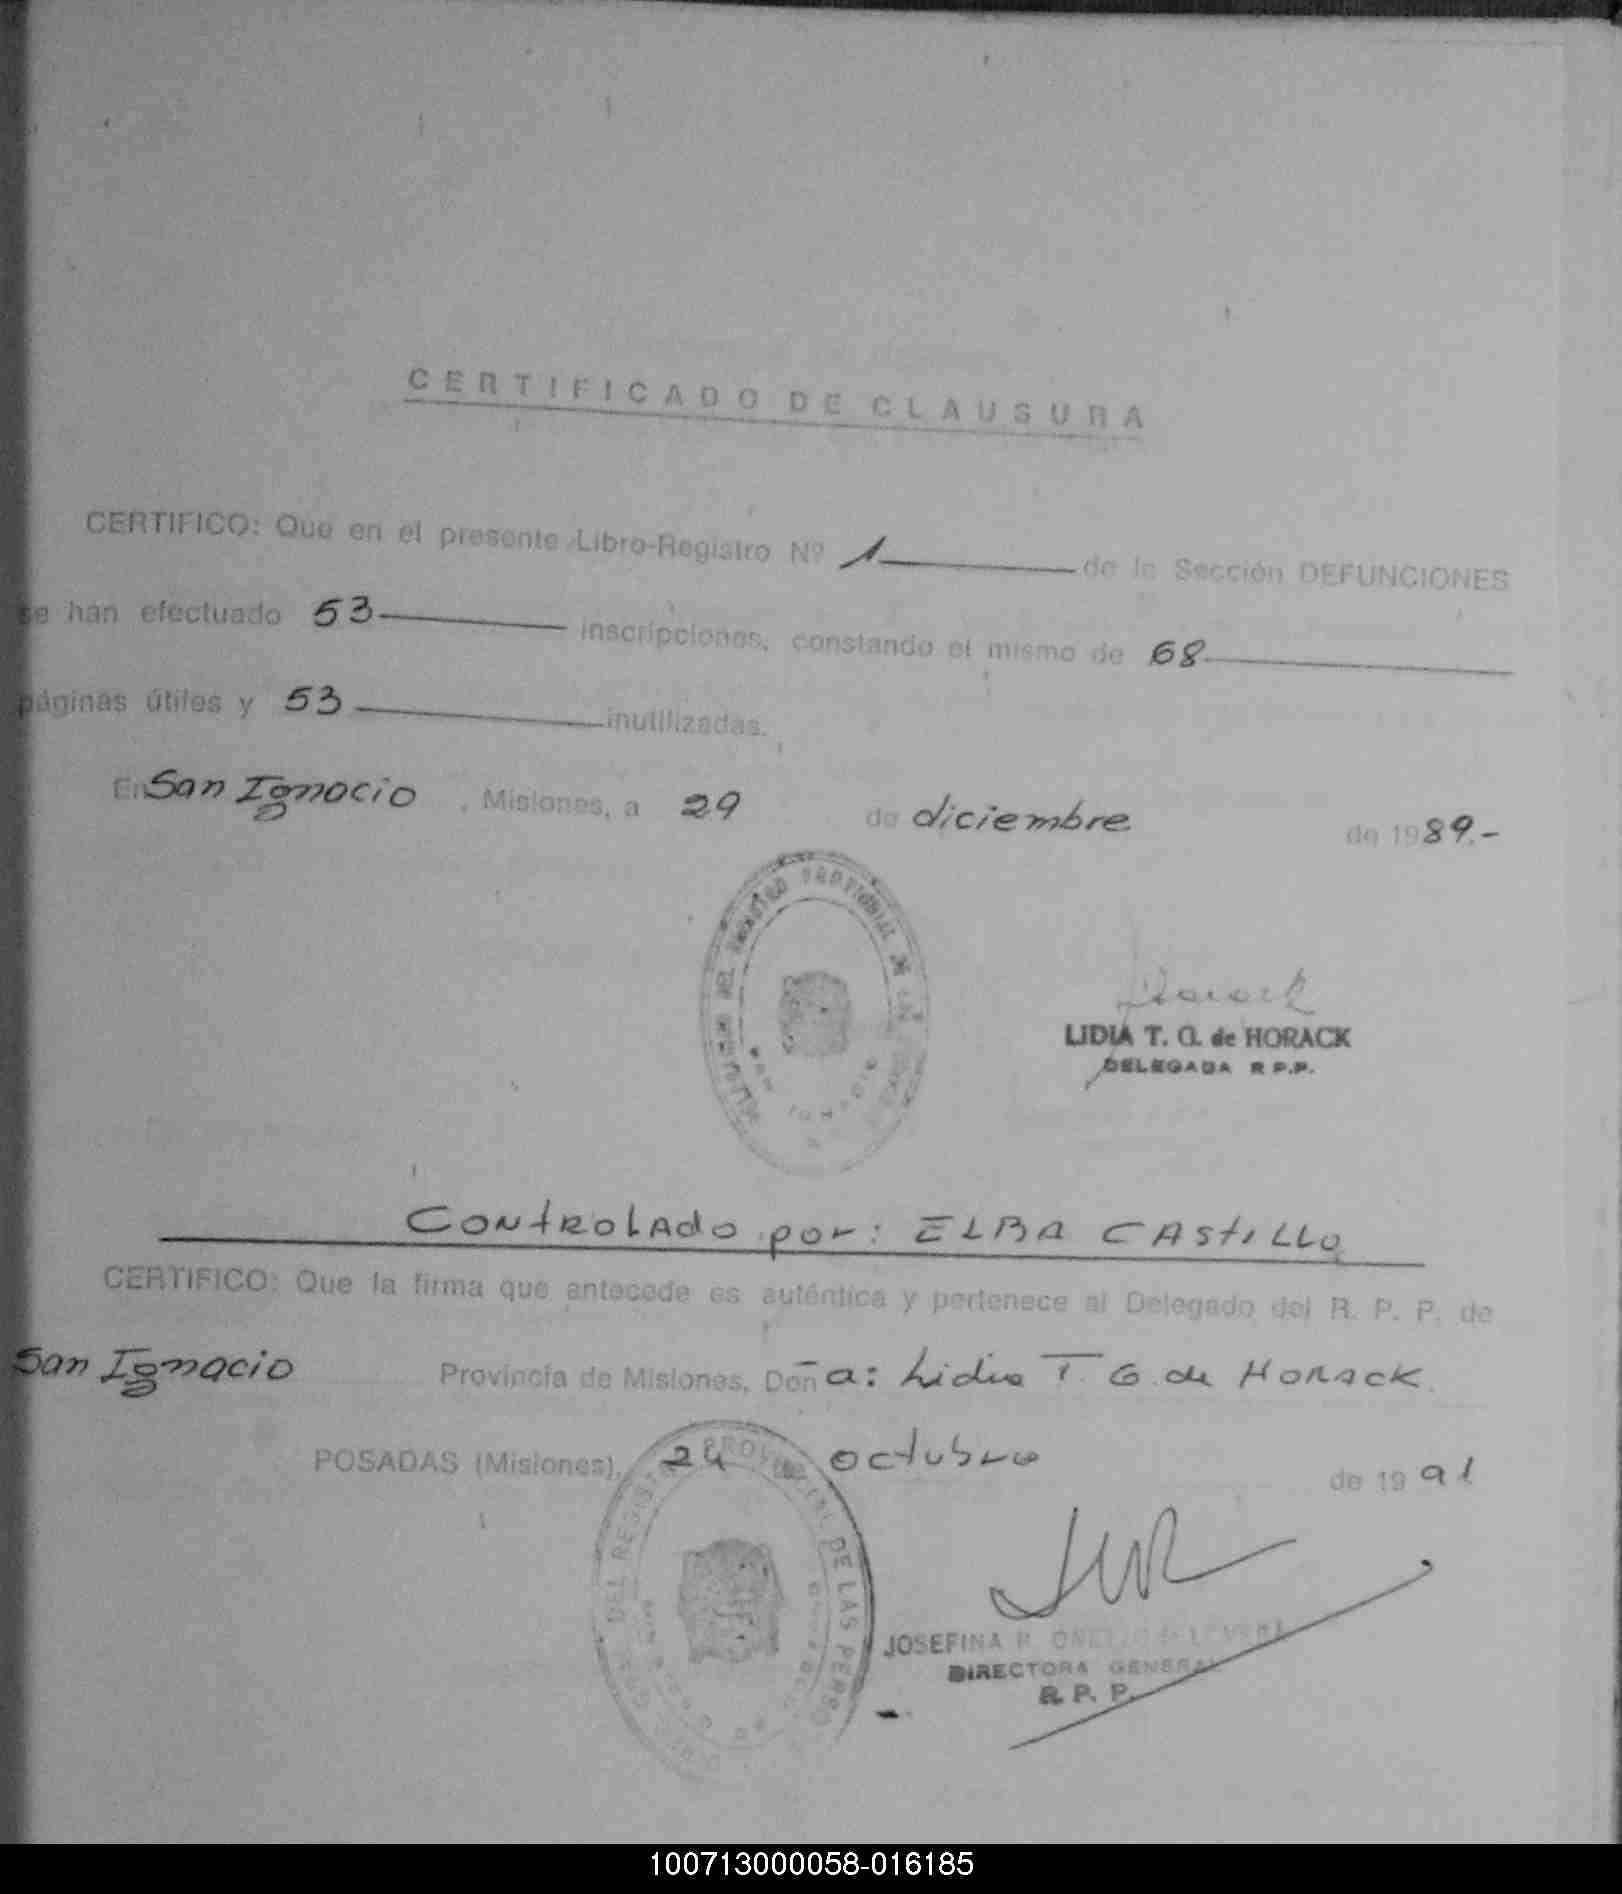 CERTIFICADO DE CLAUSURA
CERTIFICO: Que en el presente Libro-Registro Nº 1 de la Sección DEFUNCIONES
se han efectuado 53 inscripciones, constando el mismo de 68
páginas útiles y 53 inutilizadas.
En San Ignacio, Misiones, a 29 de diciembre de 1989.-
DEL REGISTRO PROVINCIAL DE LAS
SAN IGNACIO
Horack
LIDIA T. G. de HORACK
DELEGADA R P.P.
Controlado por: ELBA CASTILLO
CERTIFICO: Que la firma que antecede es auténtica y pertenece al Delegado del R. P. P. de
San Ignacio Provincia de Misiones, Doña: Lidia T. G. de Horack.
POSADAS (Misiones), 24 octubre de 1991
DEL REGISTRO PROVINCIAL DE LAS PERSO
JOSEFINA R.
DIRECTORA GENERAL
R. P. P.
100713000058-016185